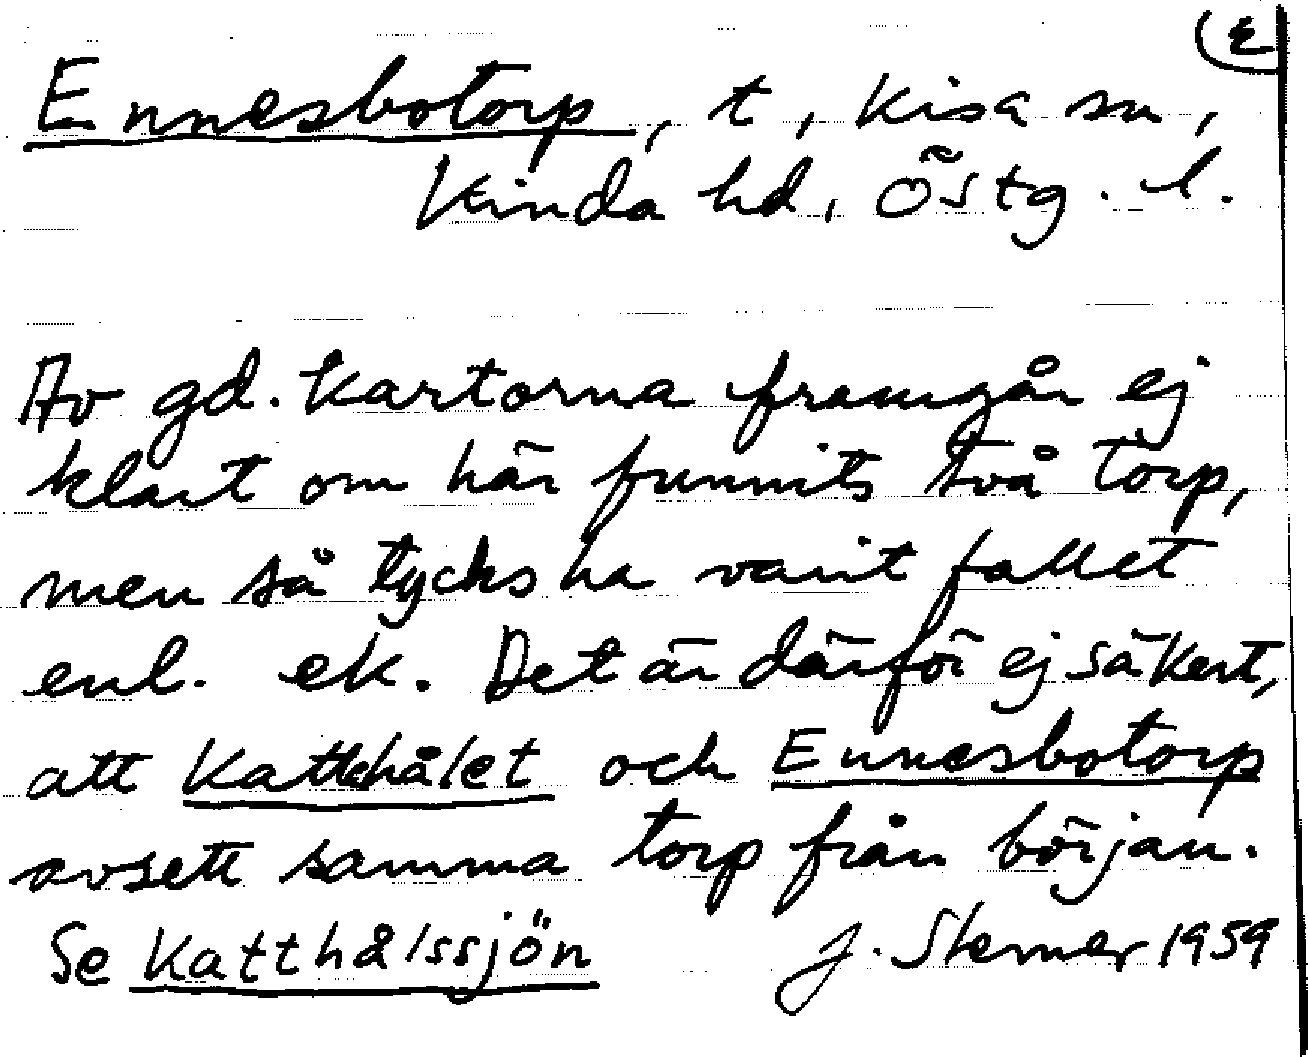 E
Ennesbotorp, t, Kisa sn,
Kinda hd, Östg. l.
Av gd. kartorna framgår ej
klart om här funnits två torp,
men så tycks ha varit fallet
enl. ek. Det är därför ej säkert,
att Katthålet och Ennesbotorp
avsett samma torp från början.
Se Katthålssjön J. Sterner 1959